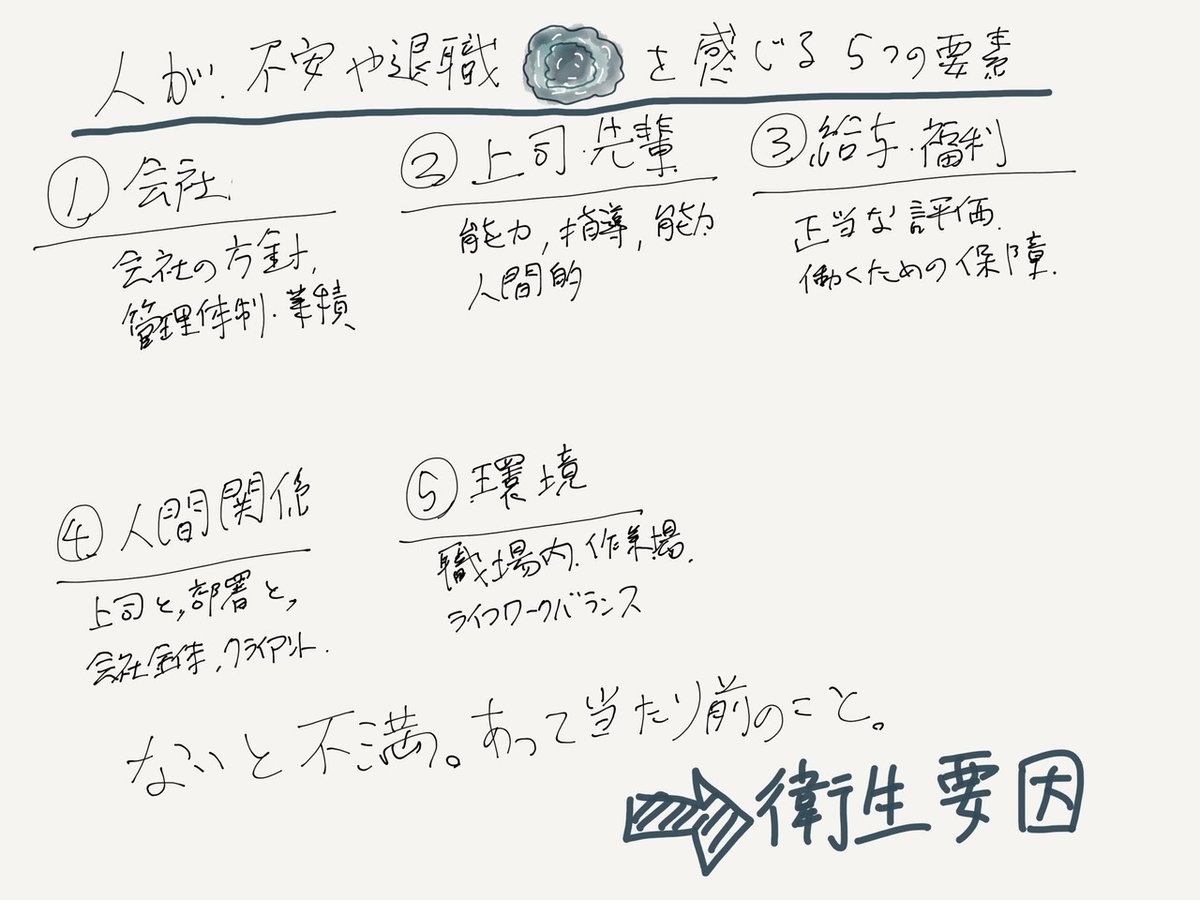 人が、不安や退職を感じる5つの要素
① 会社
会社の方針,
管理体制・業績
② 上司・先輩
能力,指導,能力
人間的
③ 給与・福利
正当な評価.
働くための保障.
④ 人間関係
上司と,部署と,
会社全体,クライアント.
⑤ 環境
職場内.作業場.
ライフワークバランス
ないと不満。あって当たり前のこと。
衛生要因